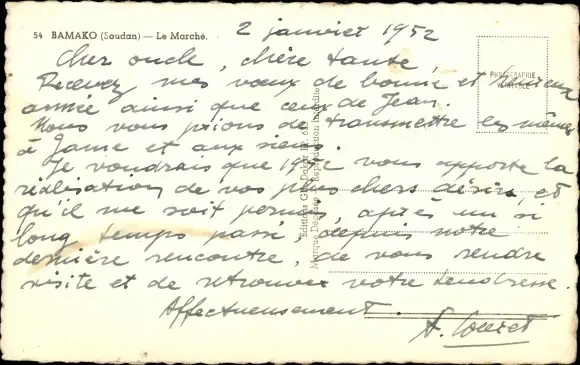 54 BAMAKO (Soudan) — Le Marché.
2 janvier 1952
Cher oncle, chère tante,
Recevez mes vœux de bonne et heureuse
année ainsi que ceux de Jean.
Nous vous prions de transmettre les mêmes
à Janie et aux siens.
Je voudrais que 1952 vous apporte la
réalisation de vos plus chers désirs, et
qu'il me soit permis, après un si
long temps passé depuis notre
dernière rencontre, de vous rendre
visite et de retrouver votre tendresse.
Affectueusement.
Editions Gil
Reproduction interdite
Marque Déposée